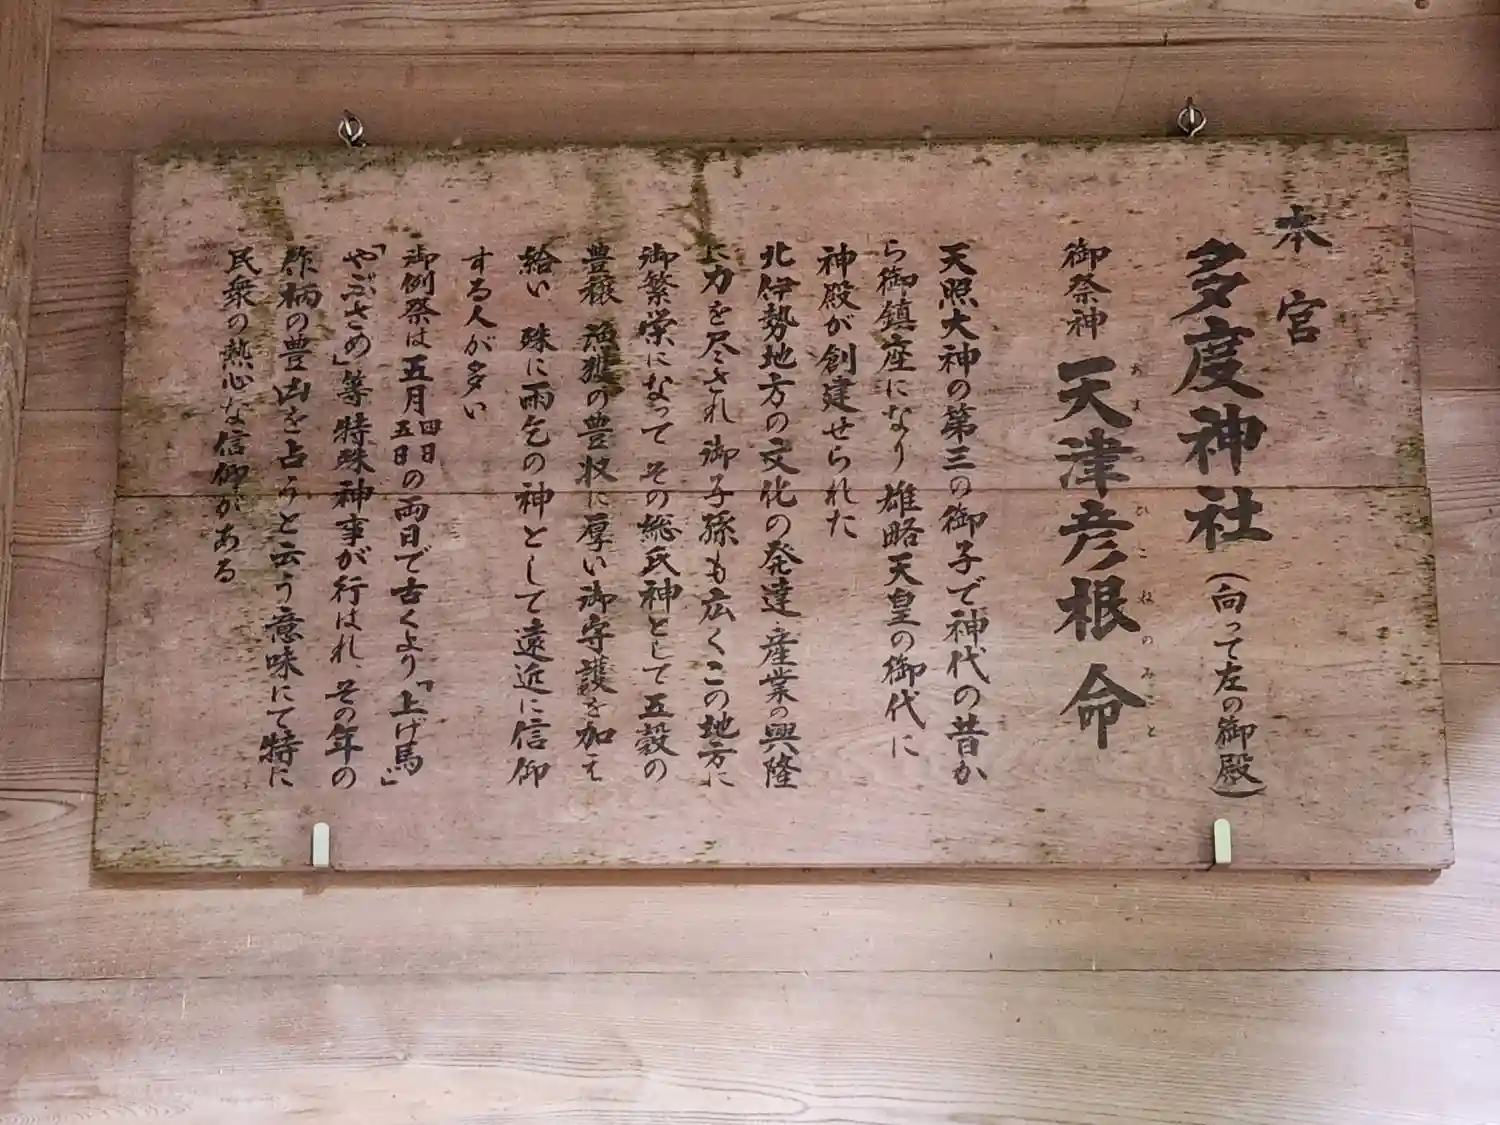 本宮
多度神社(向って左の御殿)
御祭神 天津彦根命
あまつひこねのみこと
天照大神の第三の御子で神代の昔か
ら御鎮座になり雄略天皇の御代に
神殿が創建せられた
北伊勢地方の文化の発達・産業の興隆
に力を尽され御子孫も広くこの地方に
御繁栄になって その総氏神として五穀の
豊穣 漁獲の豊収に厚い御守護を加え
給い 殊に雨乞の神として遠近に信仰
する人が多い
御例祭は五月四日五日の両日で古くより「上げ馬」
「やぶさめ」等特殊神事が行はれ、その年の
作柄の豊凶を占うと云う意味にて特に
民衆の熱心な信仰がある